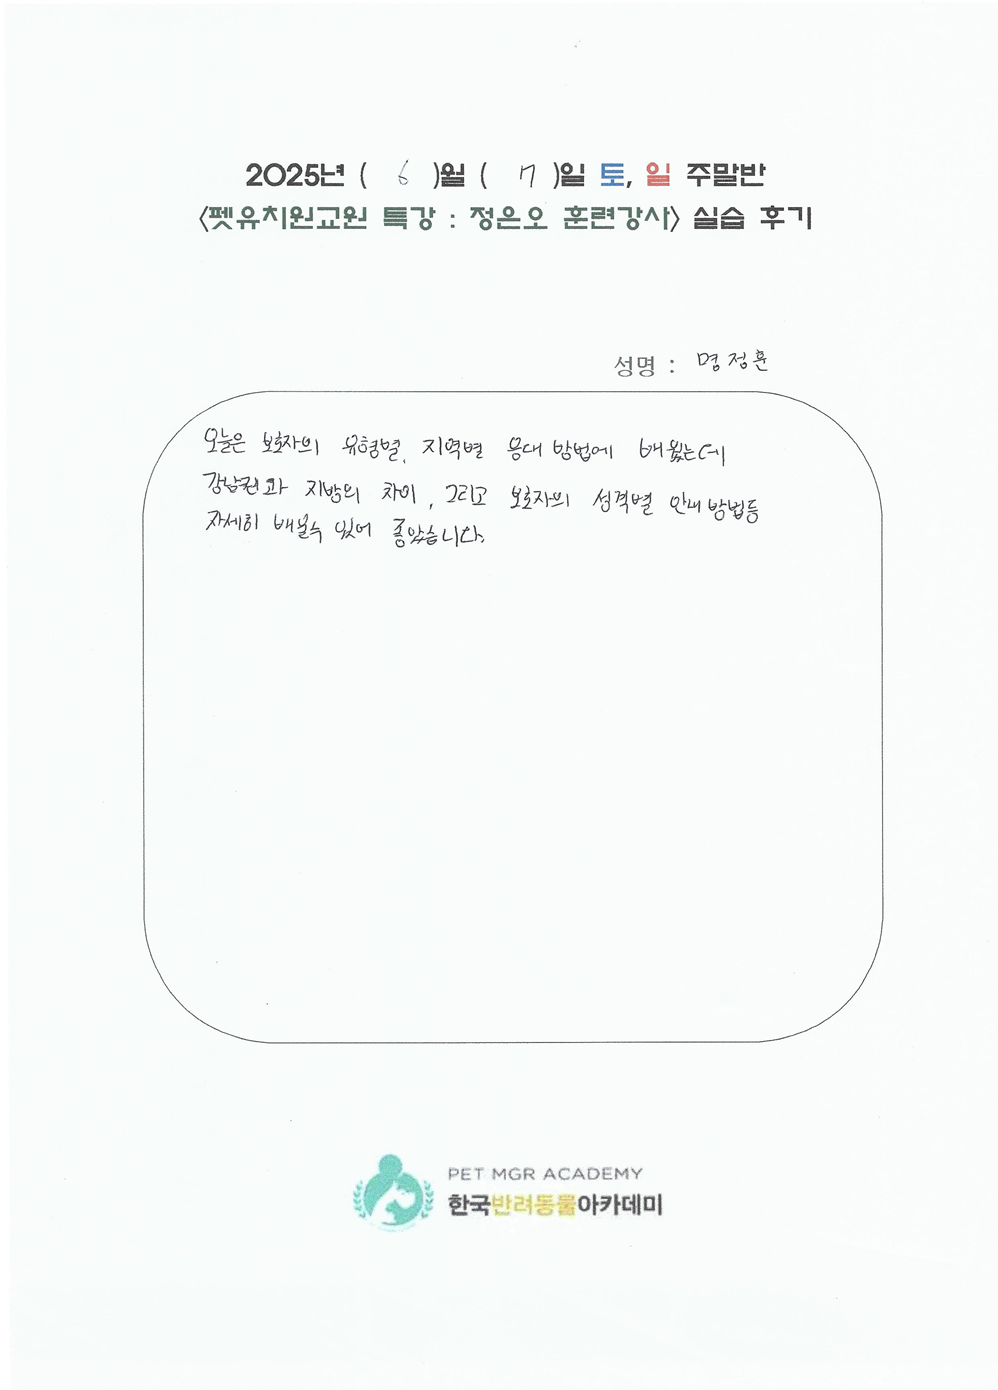 2025년 ( 6 )월 ( 7 )일 토, 일 주말반
<펫유치원교원 특강 : 정은오 훈련강사> 실습 후기
성명 : 명정훈
오늘은 보호자의 유형별, 지역별 응대 방법에 배웠는데
강남권과 지방의 차이, 그리고 보호자의 성격별 안내 방법등
자세히 배울수 있어 좋았습니다.
PET MGR ACADEMY
한국반려동물아카데미